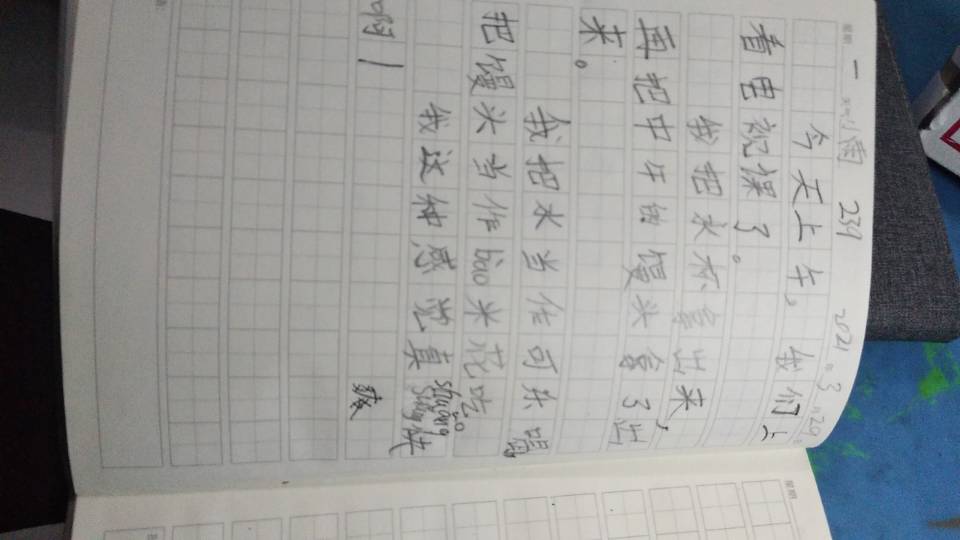 星期 一 天气小雨 239 2021.3.29
今天上午。我们上
看电视课了。
我把水杯拿出来,
再把中午的馒头拿了出
来。
我把水当作可乐喝
把馒头当作bāo米花吃。
我这种感觉真shuǎng快
啊! 爽
星期